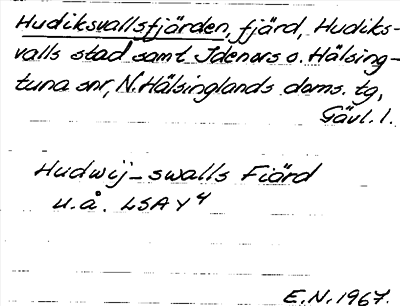 Hudiksvallsfjärden, fjärd, Hudiks-
valls stad samt Idenors o. Hälsing-
tuna snr, N. Hälsinglands doms. tg,
Gävl. l.
Hudwij-swalls Fiärd
u.å. LSA Y 4
E.N. 1967.